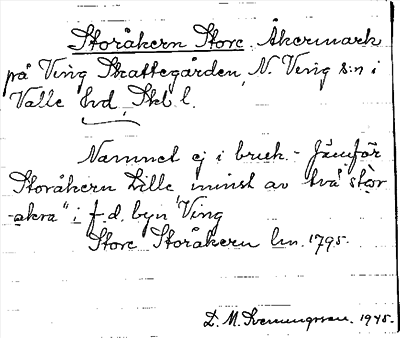 Storåkern Store. Åkermark
på Ving Skattegården, N. Ving s:n i
Valle hd, Skbl.
Namnet ej i bruk. - Jämför
Storåkern Lille minst av två "stor
-åkra" i f.d. byn Ving
Store Storåkern lm. 1795.
D. M. Svenungsson. 1945.